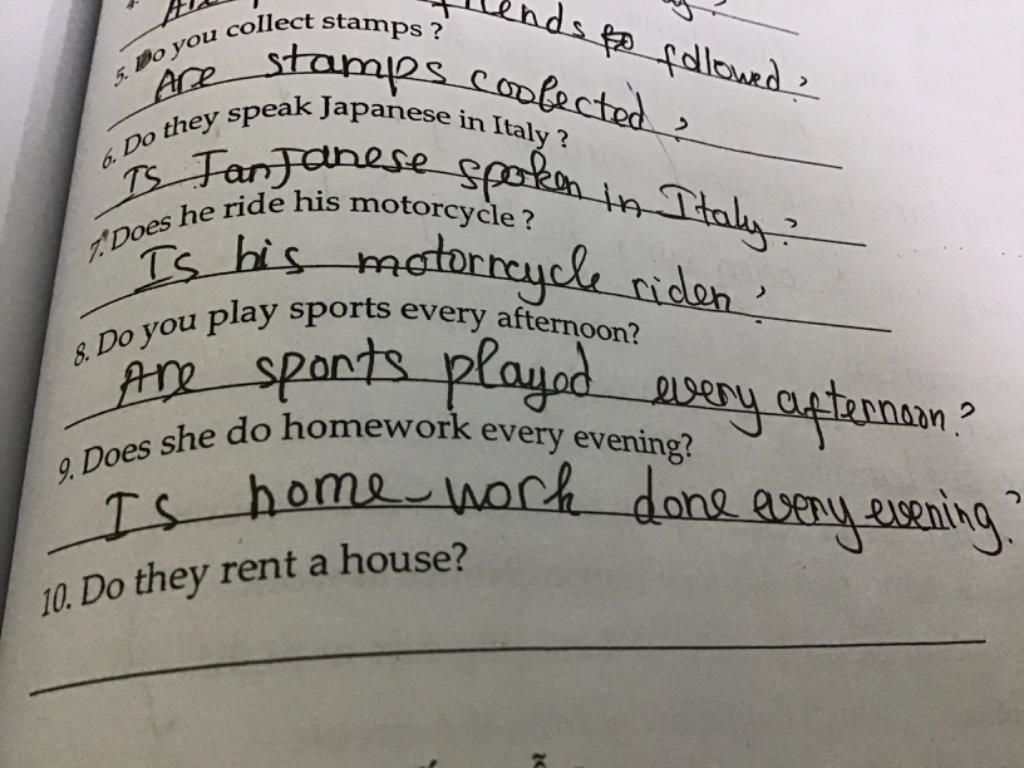 friends so followed?
5. Do you collect stamps ?
Are stamps coolected ?
6. Do they speak Japanese in Italy ?
Is JanJanese spoken in Italy ?
7. Does he ride his motorcycle ?
Is his motorrcycle riden ?
8. Do you play sports every afternoon?
Are sports played every afternoon ?
9. Does she do homework every evening?
Is home-work done every evening ?
10. Do they rent a house?